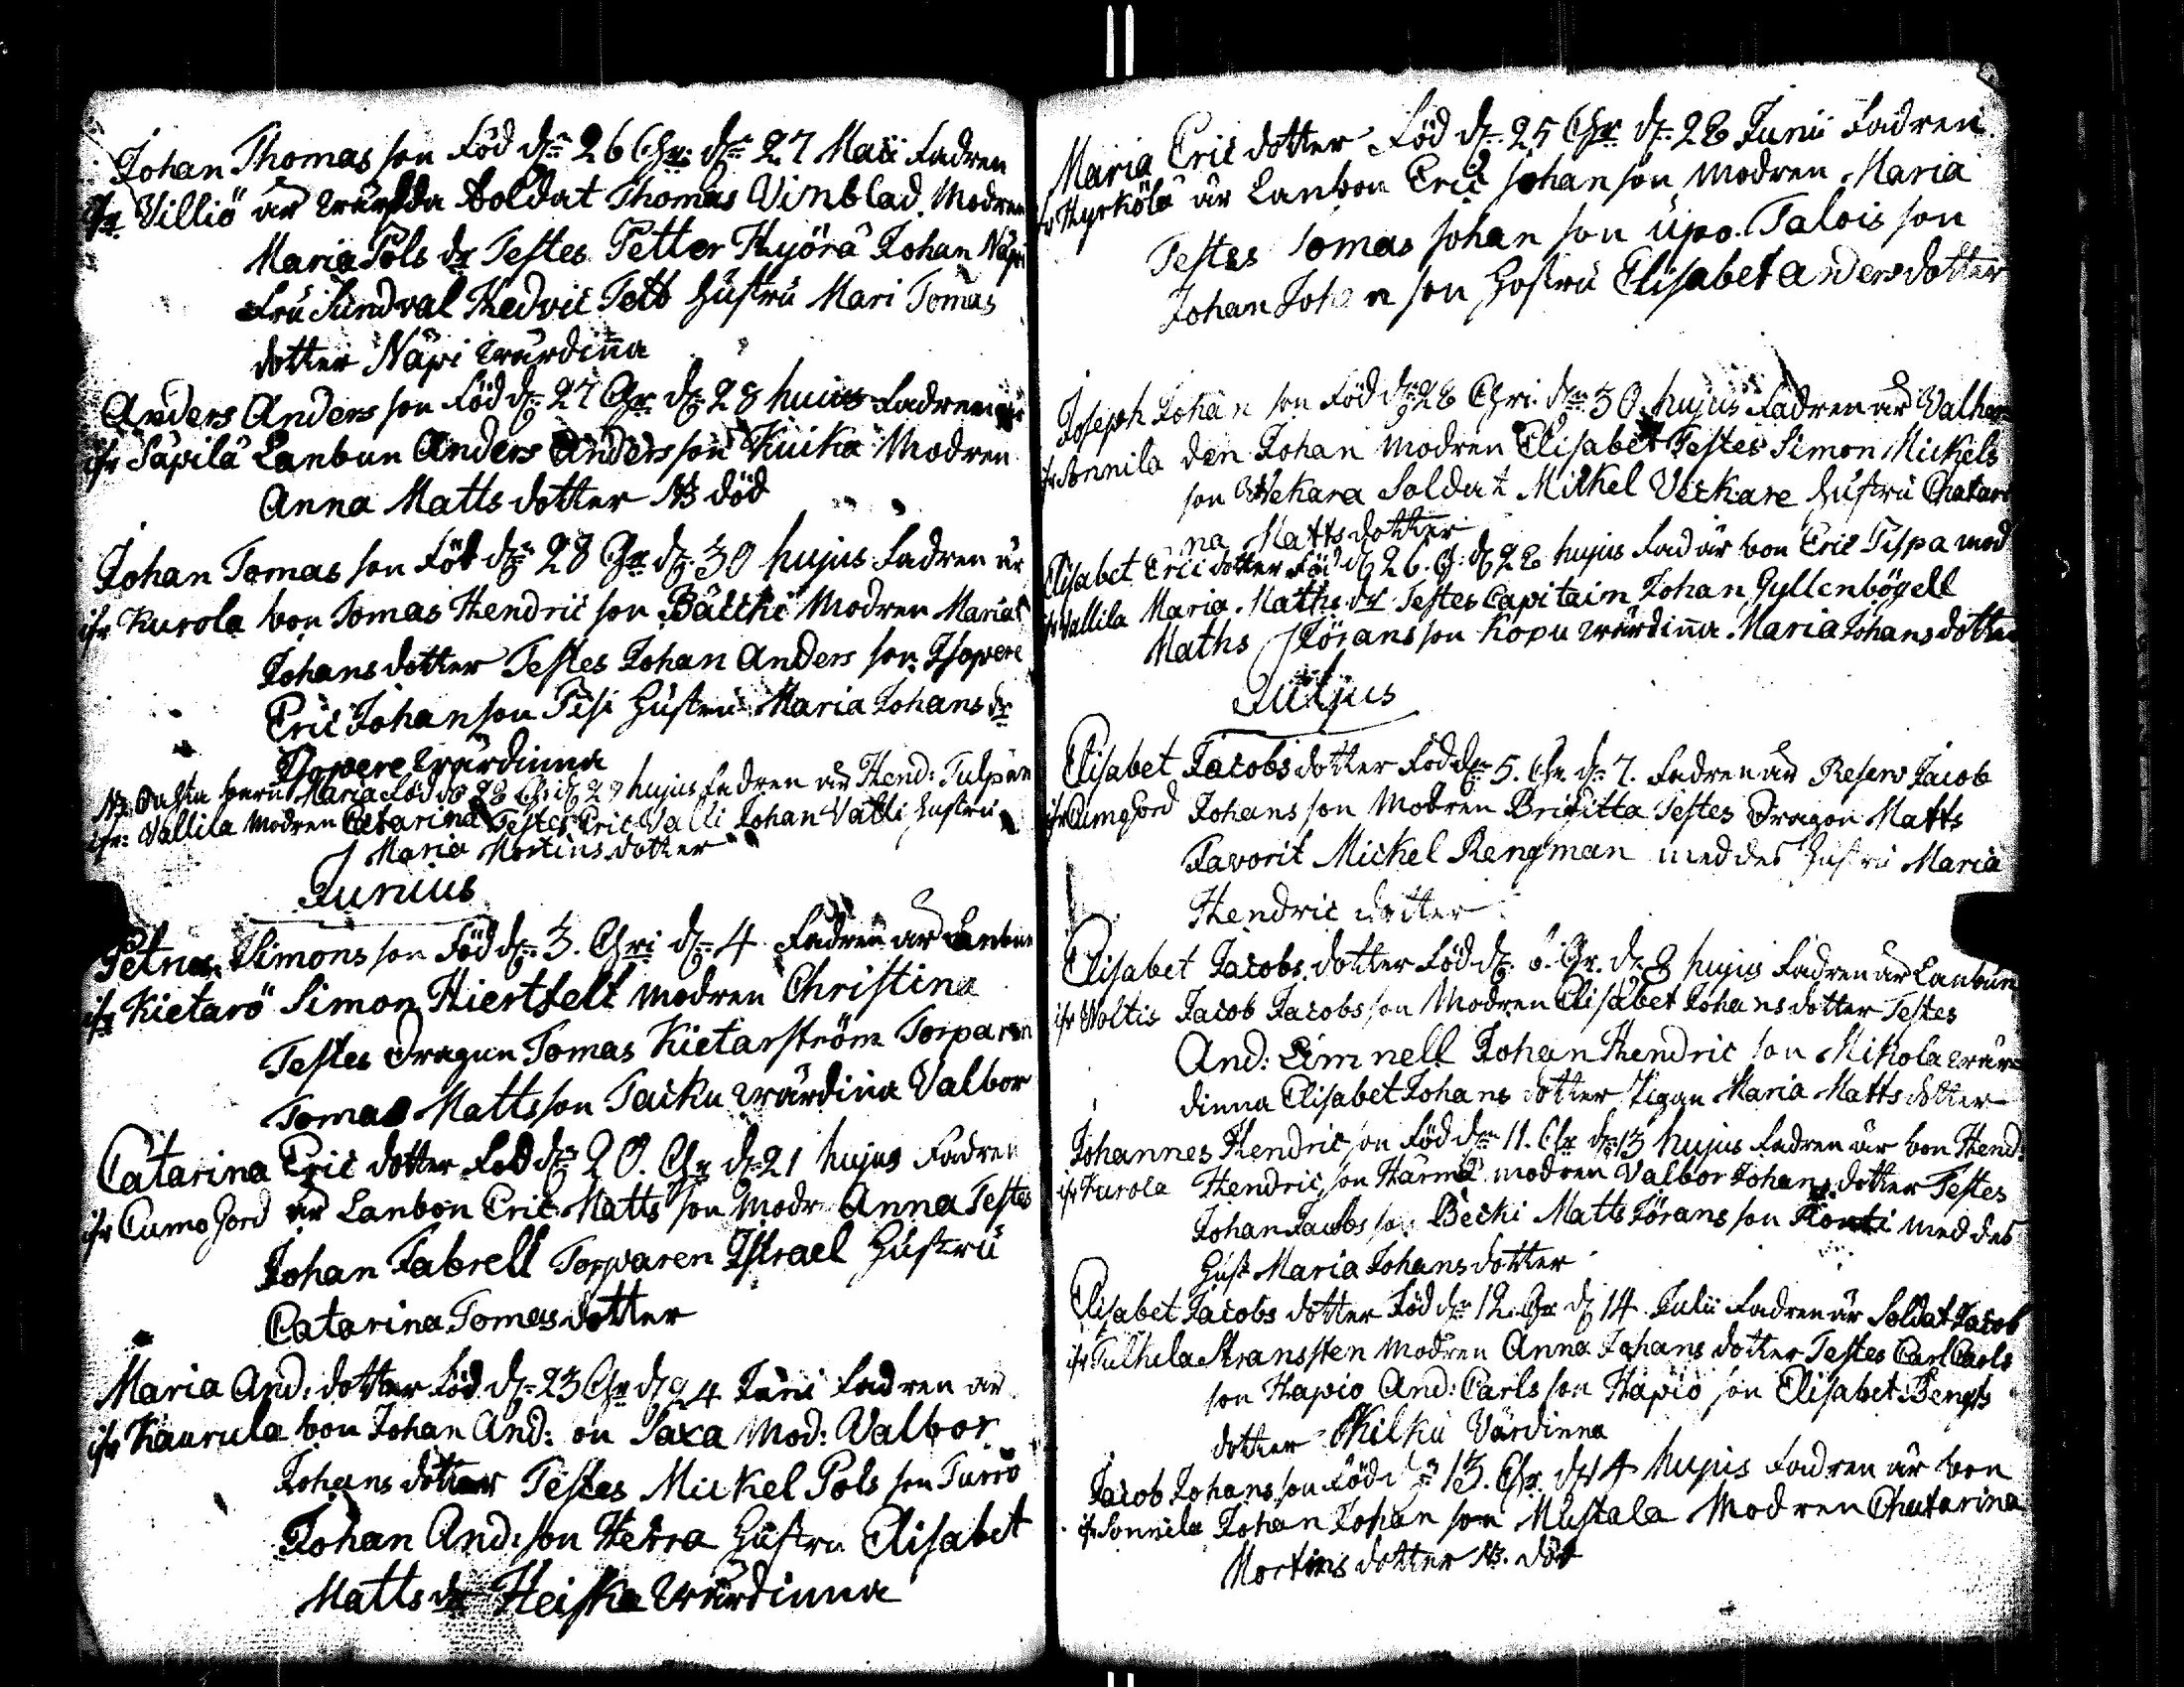 Johan Thomas son Föd dn 26 Chr: dn 27 Maii Fadren
ifr Villiö är wärfda Soldat Thomas Vinblad Modren
Maria Pols dr Testes Petter Kyörä Johan Näpi
Fru Sundval Hedvic Tett Hustru Mari Tomas
dotter Näpi wärdiña
Anders Anders son Föd dn 27 Chr dn 28 huius Fadren är
ifr Säpilä Lanbun Anders Anders son Kuika Modren
Anna Matts dotter NB död
Johan Tomas son Föd dn 28 Chr dn 30 hujus Fadren är
ifr Kurola bon Tomas Hendric son Bäcki Modren Maria
Johans dotter Testes Johan Anders son Isopere
Eric Johan son Tisi Hustru Maria Johans dr
Isopere wärdinna
NB. barn Maria Föd d 28 Ch: d 29 hujus Fadren är Hend: Tulpan
ifr: Vallila Modren Catarina Testes Eric Valli Johan Valli Hustru
Maria Mortins dotter
Junius
Petrus Simons son Föd dn 3. Chri dn 4 Fadren är Lanbun
ifr Kietarö Simon Hiertfelt modren Christina
Testes Dragun Tomas Kietarström Torparen
Tomas Matts son Tacku wärdiña Valbor
Catarina Eric dotter Föd dn 20. Chr dn 21 hujus Fadren
ifr Cumo gord är Lanbon Eric Matts son Modr Anna Testes
Johan Fabrell Torparen Isrrael Hustru
Catarina Tomas dotter
Maria And: dotter Föd dn 23 Chr d 24 Juni Fadren är
ifr Kaurula bon Johan And: on Saxa Mod: Valbor
Johans dotter Testes Mickel Pols son Turro
Johan And: son Herra Hustru Elisabet
Matts dr Heiska wärdinna
Maria Eric dotter Föd dn 25 Chr dn 28 Junii Fadren
ifr Hyrkölä är Lanbon Eric Johan son Modren Maria
Testes Tomas Johan son Upo. Talois son
Johan Johan son Hostru Elisabet anders dotter
Joseph Johan son Föd dn 28 Chri. dn 30. hujus Fadren är Valher
ifr Sonnila den Johan Modren Elisabet Testes Simon Mickels
son Wekara Soldat Mickel Veckare Hustru Chatari
na Matts dotter
Elisabet Eric dotter Föd d 26. C. d 28 hujus Fad är bon Eric Tispa mod
ifr Vallila Maria Maths dr Testes Capitaim Johan Gyllenbögell
Maths Jörans son Kopu wärdiña Maria Johans dotter
Juljus
Elisabet Jacobs dotter Föd dn 5. Chr dn 7. Fadren är Reserv Jacob
ifr Cumogord Johans son Modren Brigitta Testes Dragon Matts
Favorit Mickel Rengman med des Hustru Maria
Hendric dotter
Elisabet Jacobs dotter Föd d. 6. Chr. dn 8 hujus Fadren är Lanbun
ifr Woltis Jacob Jacobs son Modren Elisabet Johans dotter Testes
And: Limnell Johan Hendric son Mikola wär=
dinna Elisabet Johans dotter Pigan Maria Matts dotter
Johannes Hendric son Föd dn 11. Chr dn 13 hujus Fadren är bon Hend:
ifr Kurola Hendric son Härmä modren Valbor Johans dotter Testes
Johan Jacobs son Becki Matts Jörans son Konti med des
Hust Maria Johans dotter
Elisabet Jacobs dotter Föd dn 12. Chr d 14 Julii Fadren är Soldat Jacob
ifr Tulhila Stranssten modren Anna Johans dotter Testes Carl Carls
son Hapio And: Carls son Hapio son Elisabet Bengts
dotter Kilku Värdinna
Jacob Johans son Föd dn 13. Chr. dn 14 hujus Fadren är bon
ifr Sonnila Johan Johan son Mustala Modren Chatarina
Mortins dotter NB. döt